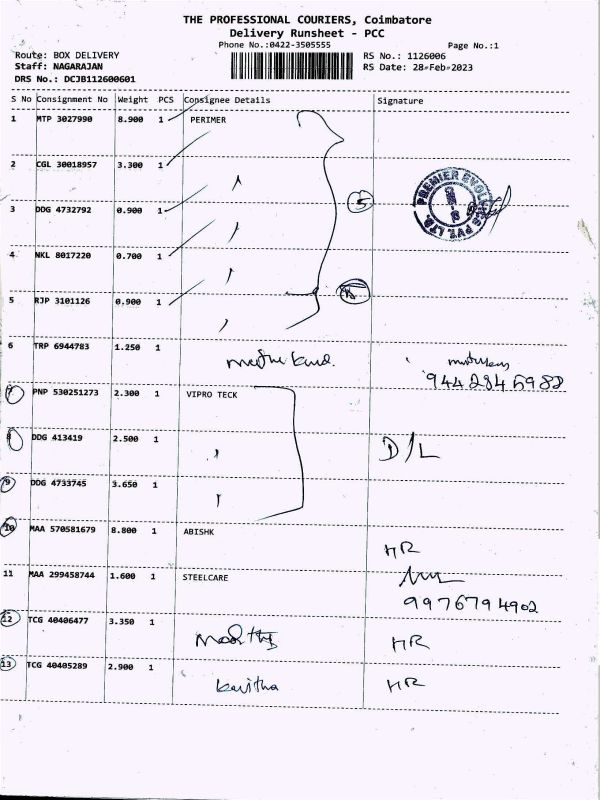 THE PROFESSIONAL COURIERS, Coimbatore
Delivery Runsheet - PCC
Phone No.:0422-3505555 Page No.:1
Route: BOX DELIVERY RS No.: 1126006
Staff: NAGARAJAN RS Date: 28-Feb-2023
DRS No.: DCJB112600601
S No Consignment No Weight PCS Consignee Details Signature
1 MTP 3027990 8.900 1 PERIMER
2 CGL 30018957 3.300 1
3 DDG 4732792 0.900 1 5
4 NKL 8017220 0.700 1
5 RJP 3101126 0.900 1
6 TRP 6944783 1.250 1
9442845982
7 PNP 530251273 2.300 1 VIPRO TECK
8 DDG 413419 2.500 1 D/L
9 DDG 4733745 3.650 1
10 MAA 570581679 8.800 1 ABISHK HR
11 MAA 299458744 1.600 1 STEELCARE
9976794902
12 TCG 40406477 3.350 1 HR
13 TCG 40405289 2.900 1 kavitha HR